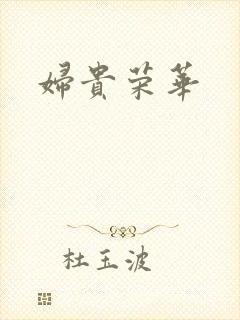 婦貴荣華
杜玉波